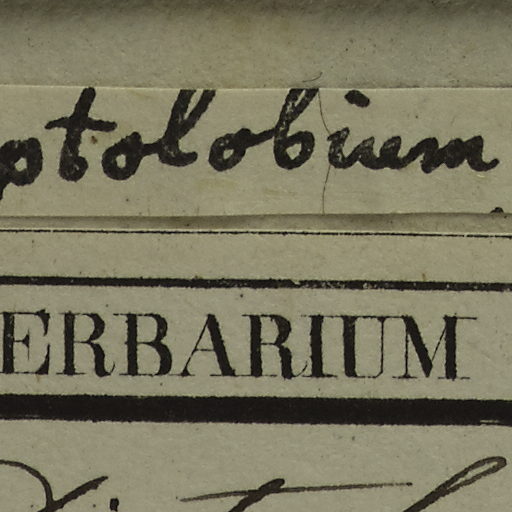 ptolobium
ERBARIUM